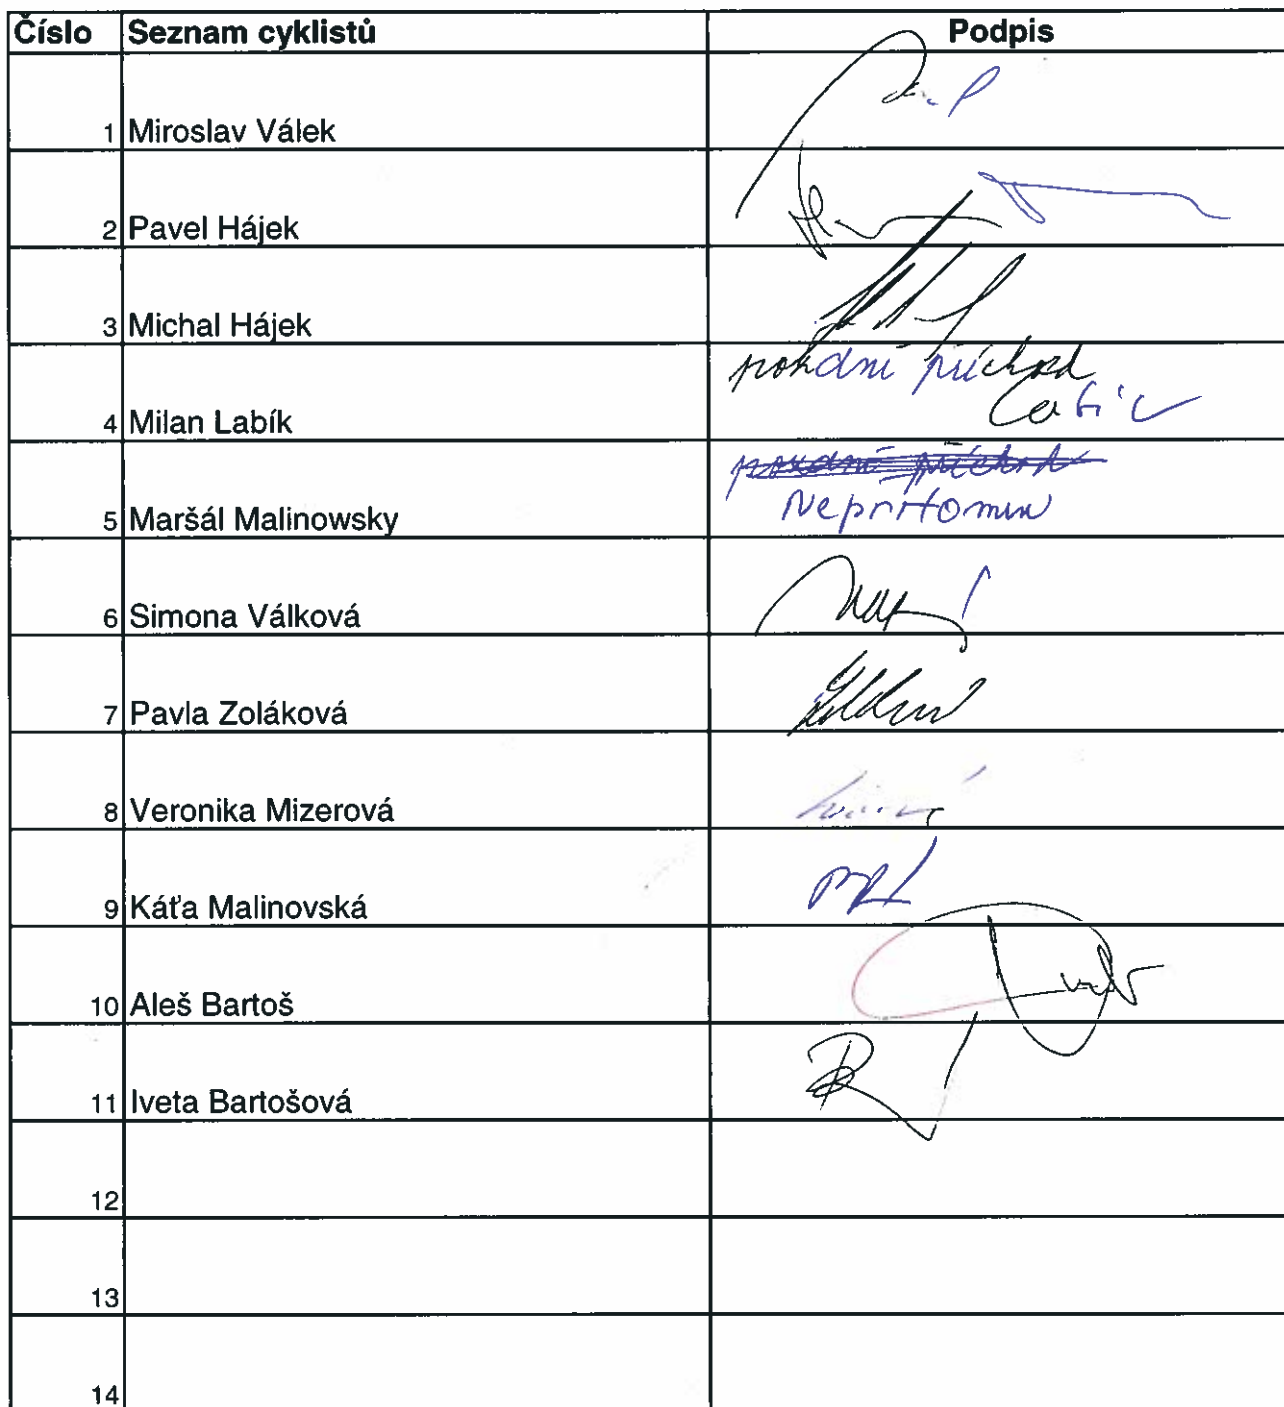 Číslo Seznam cyklistů Podpis
1 Miroslav Válek
2 Pavel Hájek
3 Michal Hájek
pozdní příchod
4 Milan Labík
5 Maršál Malinowsky
Nepřítomen
6 Simona Válková
7 Pavla Zoláková
8 Veronika Mizerová
9 Káťa Malinovská
10 Aleš Bartoš
11 Iveta Bartošová
12
13
14